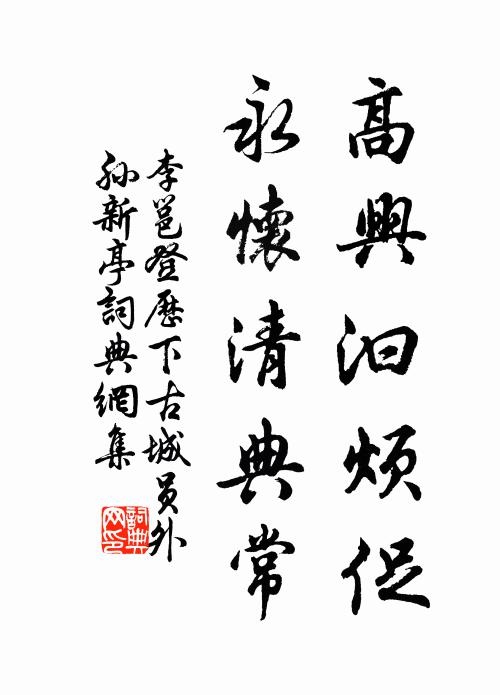 高興汩煩促
永懷清典常
李邕登歷下古城員外
孫新亭詞典網集
詞典
网印